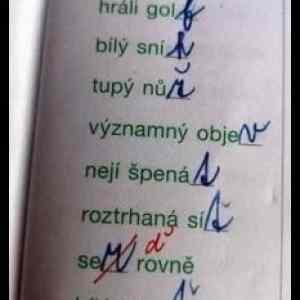 hráli golf
bílý sníh
tupý nůž
významný objev
nejí špenát
roztrhaná síť
seď rovně